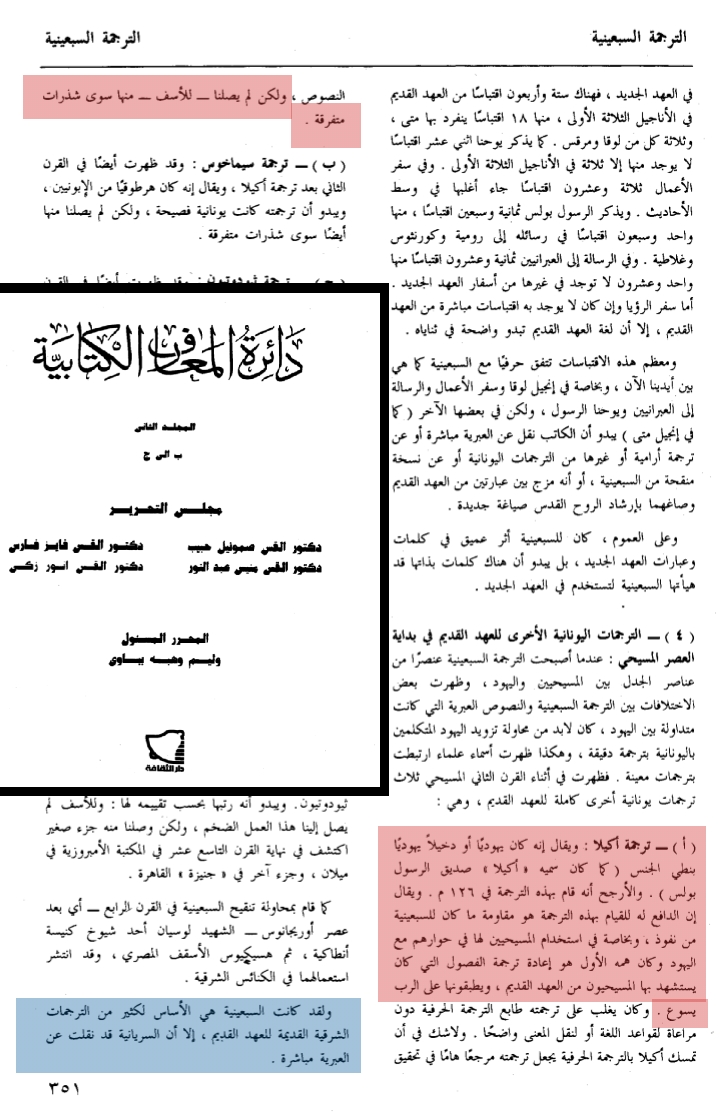 الترجمة السبعينية
الترجمة السبعينية
في العهد الجديد ، فهناك ستة وأربعون اقتباسًا من العهد القديم
في الأناجيل الثلاثة الأولى ، منها ١٨ اقتباسًا ينفرد بها متى ،
وثلاثة كل من لوقا ومرقس . كما يذكر يوحنا اثني عشر اقتباسًا
لا يوجد منها إلا ثلاثة في الأناجيل الثلاثة الأولى . وفي سفر
الأعمال ثلاثة وعشرون اقتباسًا جاء أغلبها في وسط
الأحاديث . ويذكر الرسول بولس ثمانية وسبعين اقتباسًا ، منها
واحد وسبعون اقتباسًا في رسائله إلى رومية وكورنثوس
وغلاطية . وفي الرسالة إلى العبرانيين ثمانية وعشرون اقتباسًا منها
واحد وعشرون لا توجد في غيرها من أسفار العهد الجديد .
أما سفر الرؤيا وإن كان لا يوجد به اقتباسات مباشرة من العهد
القديم ، إلا أن لغة العهد القديم تبدو واضحة في ثناياه .
ومعظم هذه الاقتباسات تتفق حرفيًا مع السبعينية كما هي
بين أيدينا الآن ، وبخاصة في إنجيل لوقا وسفر الأعمال والرسالة
إلى العبرانيين ويوحنا الرسول ، ولكن في بعضها الآخر ( كما
في إنجيل متى ) يبدو أن الكاتب نقل عن العبرية مباشرة أو عن
ترجمة أرامية أو غيرها من الترجمات اليونانية أو عن نسخة
منقحة من السبعينية ، أو أنه مزج بين عبارتين من العهد القديم
وصاغهما بإرشاد الروح القدس صياغة جديدة .
وعلى العموم ، كان للسبعينية أثر عميق في كلمات
وعبارات العهد الجديد ، بل يبدو أن هناك كلمات بذاتها قد
هيأتها السبعينية لتستخدم في العهد الجديد .
( ٤ ) ــ الترجمات اليونانية الأخرى للعهد القديم في بداية
العصر المسيحي : عندما أصبحت الترجمة السبعينية عنصرًا من
عناصر الجدل بين المسيحيين واليهود ، وظهرت بعض
الاختلافات بين الترجمة السبعينية والنصوص العبرية التي كانت
متداولة بين اليهود ، كان لابد من محاولة تزويد اليهود المتكلمين
باليونانية بترجمة دقيقة ، وهكذا ظهرت أسماء علماء ارتبطت
بترجمات معينة . فظهرت في أثناء القرن الثاني المسيحي ثلاث
ترجمات يونانية أخرى كاملة للعهد القديم ، وهي :
( أ ) ــ ترجمة أكيلا : ويقال إنه كان يهوديًا أو دخيلاً يهوديًا
بنطي الجنس ( كما كان سميه « أكيلا » صديق الرسول
بولس ) . والأرجح أنه قام بهذه الترجمة في ١٢٦ م . ويقال
إن الدافع له للقيام بهذه الترجمة هو مقاومة ما كان للسبعينية
من نفوذ ، وبخاصة في استخدام المسيحيين لها في حوارهم مع
اليهود وكان همه الأول هو إعادة ترجمة الفصول التي كان
يستشهد بها المسيحيون من العهد القديم ، ويطبقونها على الرب
يسوع . وكان يغلب على ترجمته طابع الترجمة الحرفية دون
مراعاة لقواعد اللغة أو لنقل المعنى واضحًا . ولاشك في أن
تمسك أكيلا بالترجمة الحرفية يجعل ترجمته مرجعًا هامًا في تحقيق
النصوص ، ولكن لم يصلنا ــ للأسف ــ منها سوى شذرات
متفرقة .
( ب ) ــ ترجمة سيماخوس : وقد ظهرت أيضًا في القرن
الثاني بعد ترجمة أكيلا ، ويقال إنه كان هرطوقيًا من الإبونيين ،
ويبدو أن ترجمته كانت يونانية فصيحة ، ولكن لم يصلنا منها
أيضًا سوى شذرات متفرقة .
دائرة المعارف الكتابية
المجلد الثاني
ب الى ح
مجلس التحرير
دكتور القس صموئيل حبيب
دكتور القس فايز فارس
دكتور القس منيس عبد النور
دكتور القس انور زكي
المحرر المسئول
وليم وهبه بباوى
دار الثقافة
ثيودوتيون . ويبدو أنه رتبها بحسب تقييمه لها : وللأسف لم
يصل إلينا هذا العمل الضخم ، ولكن وصلنا منه جزء صغير
اكتشف في نهاية القرن التاسع عشر في المكتبة الأمبروزية في
ميلان ، وجزء آخر في « جنيزة » القاهرة .
كما قام بمحاولة تنقيح السبعينية في القرن الرابع ــ أي بعد
عصر أوريجانوس ــ الشهيد لوسيان أحد شيوخ كنيسة
أنطاكية ، ثم هسيكيوس الأسقف المصري ، وقد انتشر
استعمالهما في الكنائس الشرقية .
ولقد كانت السبعينية هي الأساس لكثير من الترجمات
الشرقية القديمة للعهد القديم ، إلا أن السريانية قد نقلت عن
العبرية مباشرة .
٣٥١